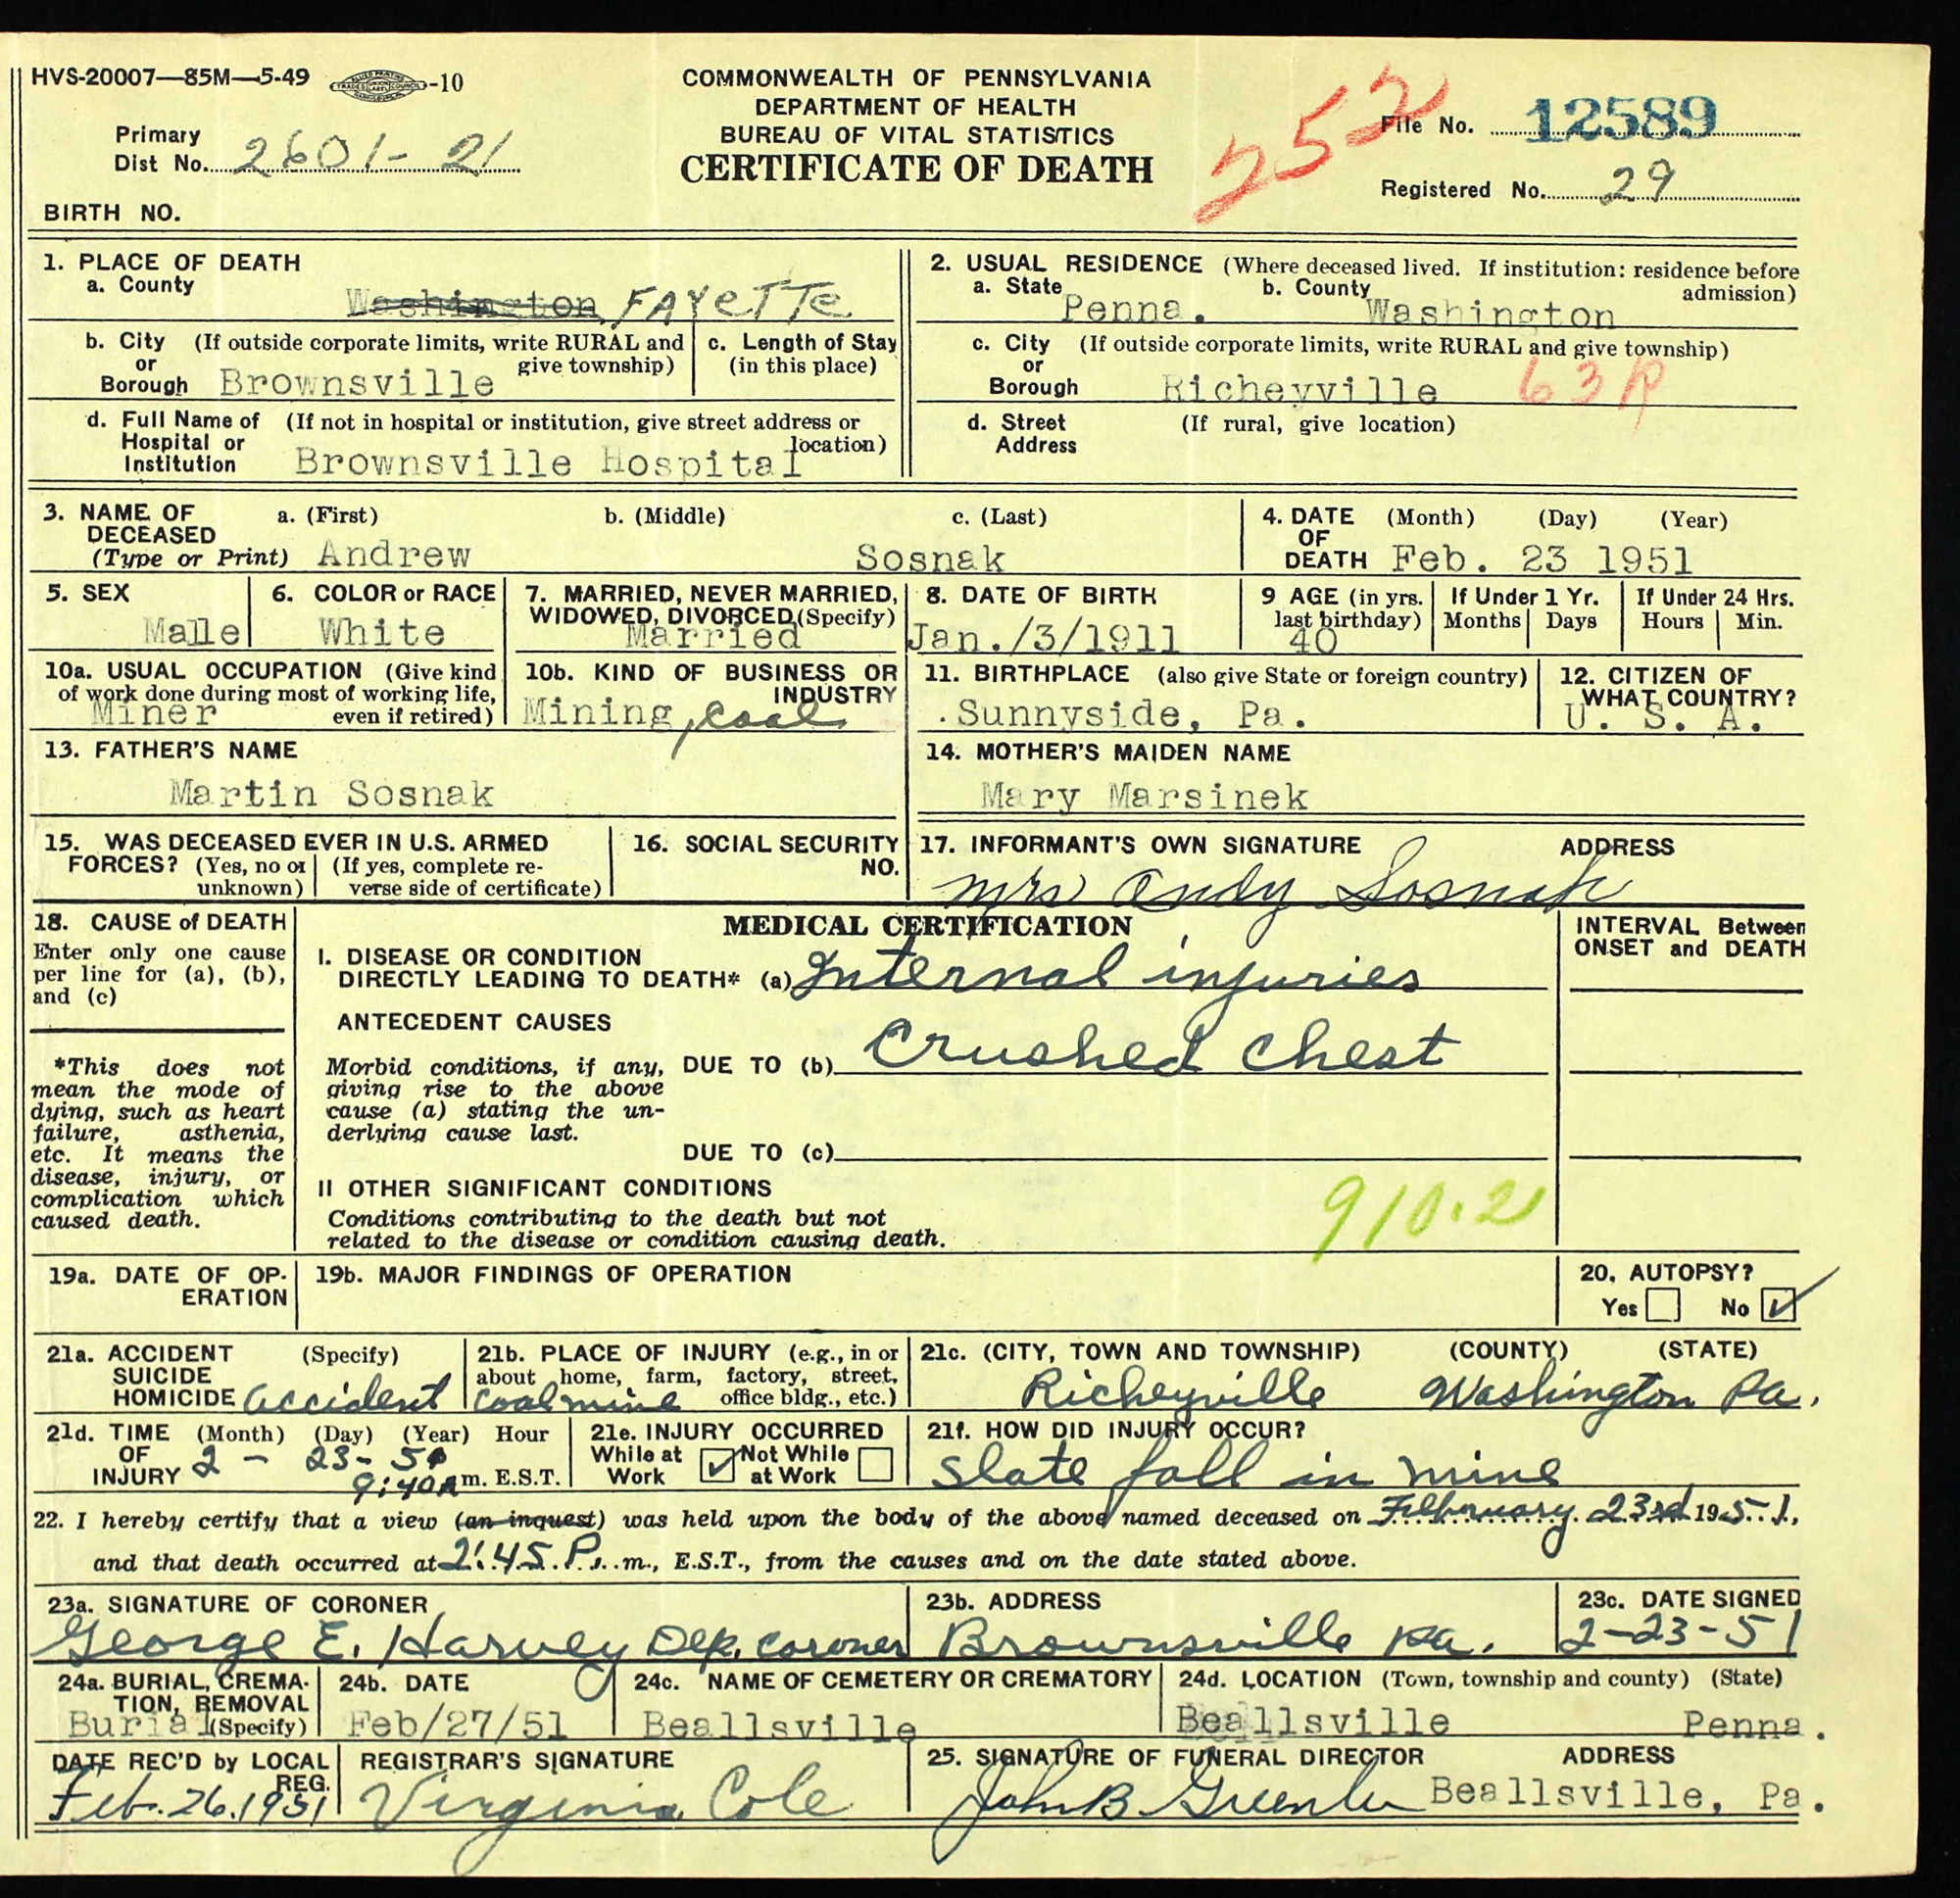 HVS-20007—85M—5-49 -10
COMMONWEALTH OF PENNSYLVANIA
DEPARTMENT OF HEALTH
BUREAU OF VITAL STATISTICS
CERTIFICATE OF DEATH
252
File No. 12589
Primary
Dist No. 2601-21
Registered No. 29
BIRTH NO.
1. PLACE OF DEATH
a. County
Washington FAYeTTe
b. City (If outside corporate limits, write RURAL and give township)
or
Borough Brownsville
c. Length of Stay
(in this place)
d. Full Name of (If not in hospital or institution, give street address or location)
Hospital or
Institution Brownsville Hospital
2. USUAL RESIDENCE (Where deceased lived. If institution: residence before admission)
a. State Penna. b. County Washington
c. City (If outside corporate limits, write RURAL and give township)
or
Borough Richeyville 63R
d. Street (If rural, give location)
Address
3. NAME OF DECEASED
(Type or Print)
a. (First) b. (Middle) c. (Last)
Andrew Sosnak
4. DATE OF DEATH (Month) (Day) (Year)
Feb. 23 1951
5. SEX
Malle
6. COLOR or RACE
White
7. MARRIED, NEVER MARRIED,
WIDOWED, DIVORCED (Specify)
Married
8. DATE OF BIRTH
Jan./3/1911
9 AGE (in yrs.
last birthday)
40
If Under 1 Yr.
Months Days
If Under 24 Hrs.
Hours Min.
10a. USUAL OCCUPATION (Give kind
of work done during most of working life,
even if retired)
Miner
10b. KIND OF BUSINESS OR
INDUSTRY
Mining, coal
11. BIRTHPLACE (also give State or foreign country)
Sunnyside, Pa.
12. CITIZEN OF
WHAT COUNTRY?
U. S. A.
13. FATHER'S NAME
Martin Sosnak
14. MOTHER'S MAIDEN NAME
Mary Marsinek
15. WAS DECEASED EVER IN U.S. ARMED
FORCES? (Yes, no or unknown) (If yes, complete reverse side of certificate)
16. SOCIAL SECURITY
NO.
17. INFORMANT'S OWN SIGNATURE ADDRESS
Mrs Andy Sosnak
18. CAUSE of DEATH
Enter only one cause
per line for (a), (b),
and (c)
*This does not
mean the mode of
dying, such as heart
failure, asthenia,
etc. It means the
disease, injury, or
complication which
caused death.
MEDICAL CERTIFICATION
I. DISEASE OR CONDITION
DIRECTLY LEADING TO DEATH* (a) Internal injuries
ANTECEDENT CAUSES
Morbid conditions, if any,
giving rise to the above
cause (a) stating the un-
derlying cause last.
DUE TO (b) Crushed Chest
DUE TO (c)
II OTHER SIGNIFICANT CONDITIONS
Conditions contributing to the death but not
related to the disease or condition causing death.
910.21
INTERVAL Between
ONSET and DEATH
19a. DATE OF OP-
ERATION
19b. MAJOR FINDINGS OF OPERATION
20. AUTOPSY?
Yes No ✓
21a. ACCIDENT (Specify)
SUICIDE
HOMICIDE accident
21b. PLACE OF INJURY (e.g., in or
about home, farm, factory, street,
office bldg., etc.)
coalmine
21c. (CITY, TOWN AND TOWNSHIP) (COUNTY) (STATE)
Richeyville Washington Pa.
21d. TIME (Month) (Day) (Year) Hour
OF
INJURY 2 - 23 - 51
9:40 A m. E.S.T.
21e. INJURY OCCURRED
While at Work ✓ Not While at Work
21f. HOW DID INJURY OCCUR?
Slate fall in mine
22. I hereby certify that a view (an inquest) was held upon the body of the above named deceased on February 23rd 1951,
and that death occurred at 2:45 P. m., E.S.T., from the causes and on the date stated above.
23a. SIGNATURE OF CORONER
George E. Harvey Dep. Coroner
23b. ADDRESS
Brownsville Pa.
23c. DATE SIGNED
2-23-51
24a. BURIAL, CREMA-
TION, REMOVAL
(Specify)
Burial
24b. DATE
Feb/27/51
24c. NAME OF CEMETERY OR CREMATORY
Beallsville
24d. LOCATION (Town, township and county) (State)
Beallsville Penna.
DATE REC'D by LOCAL
REG.
Feb. 26. 1951
REGISTRAR'S SIGNATURE
Virginia Cole
25. SIGNATURE OF FUNERAL DIRECTOR ADDRESS
John B Greenlee Beallsville, Pa.